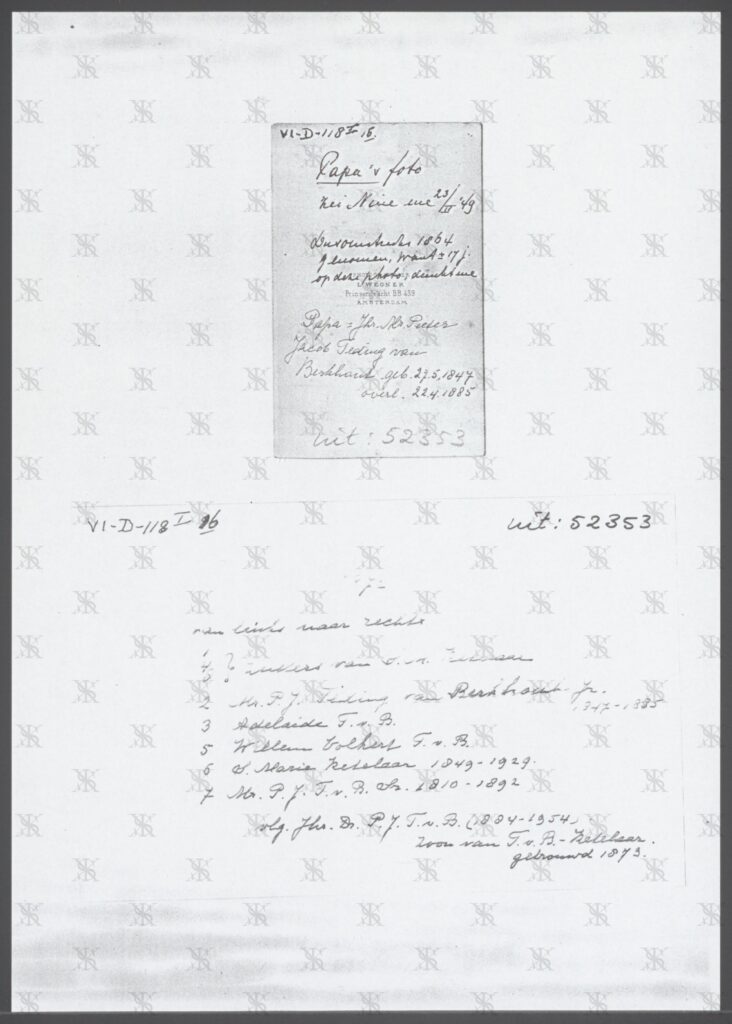 VI-D-118 I 16.
Papa's foto
zei Nine me 23/ '49
1864
genomen, want ± 17 j.
op deze photo, dunkt me
L. WEGNER
Prinsengracht BB 439
AMSTERDAM
Papa = Jhr. Mr. Pieter
Jacob Teding van
Berkhout geb. 27.5.1847
overl. 22.4.1885
uit: 52353
VI-D-118 I 16
uit: 52353
van links naar rechts
1
4 ?
van Ketelaar
2 Mr. P. J. Teding van Berkhout Jr.
1847-1885
3 Adelaide T. v. B.
5 Willem Volkert T. v. B.
6 Marie Ketelaar 1849-1929.
7 Mr. P. J. T. v. B. Sr. 1810-1892
vlg. Jhr. Dr. P. J. T. v. B. (1884-1954)
zoon van T. v. B. - Ketelaar.
getrouwd 1873.